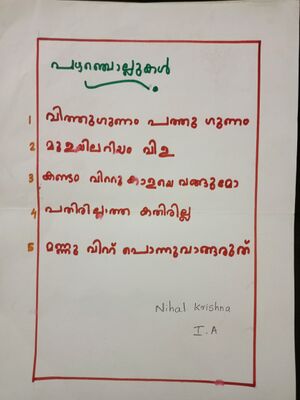 പഴഞ്ചൊല്ലുകൾ
1 വിത്തുഗുണം പത്തു ഗുണം
2 മുളയിലറിയം വിള
3 കണ്ടം വിററു കാളയെ വങ്ങുമോ
4 പതിരില്ലാത്ത കതിരില്ല
5 മണ്ണു വിറ്റ് പൊന്നുവാങ്ങരുത്
Nihal Krishna
I.A